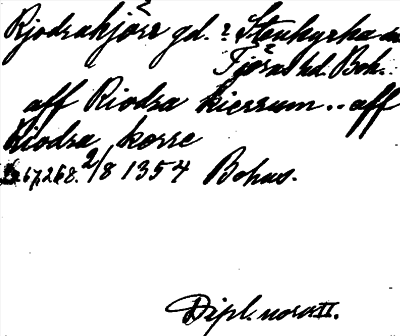 Rjodrakjärr gd. ? Stenkyrka sn
Tjörns hd. Boh.
aff Riodra kierrum .. aff
Riodra korre
267,268. 2/8 1354 Bohus.
Dipl. norv. II.